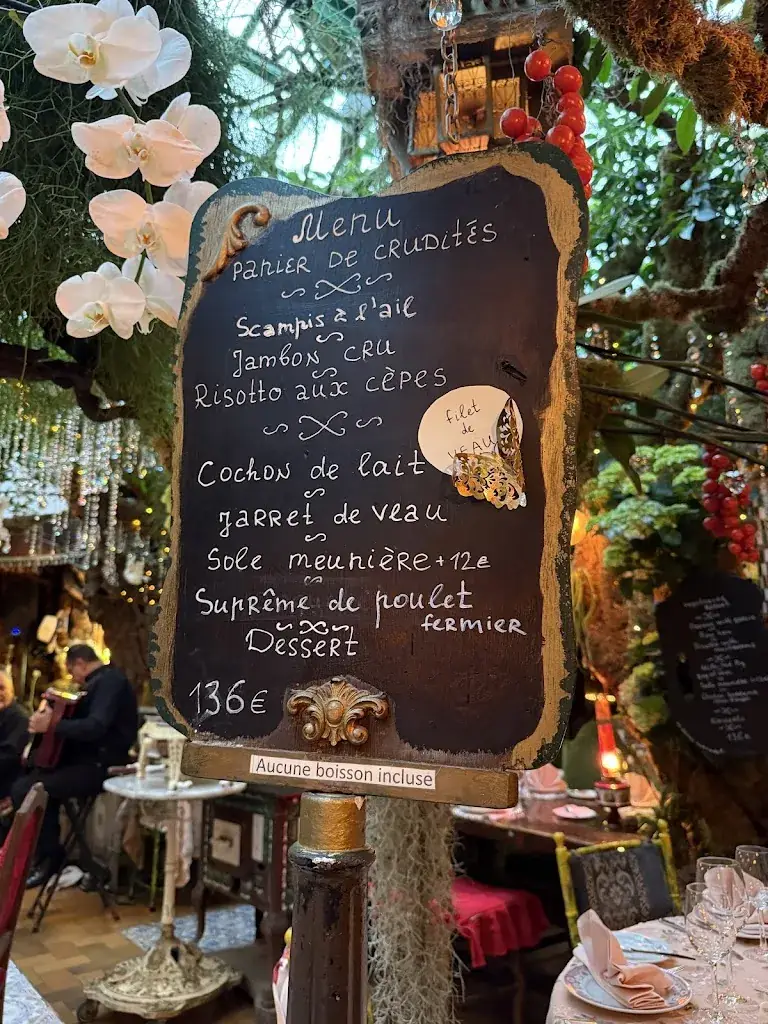 Menu
PANIER DE CRUDITÉS
Scampis à l'ail
Jambon CRU
Risotto aux cèpes
filet
de
VEAU
Cochon de lait
Jarret de veau
Sole meunière +12€
Suprême de poulet
fermier
Dessert
136€
Aucune boisson incluse